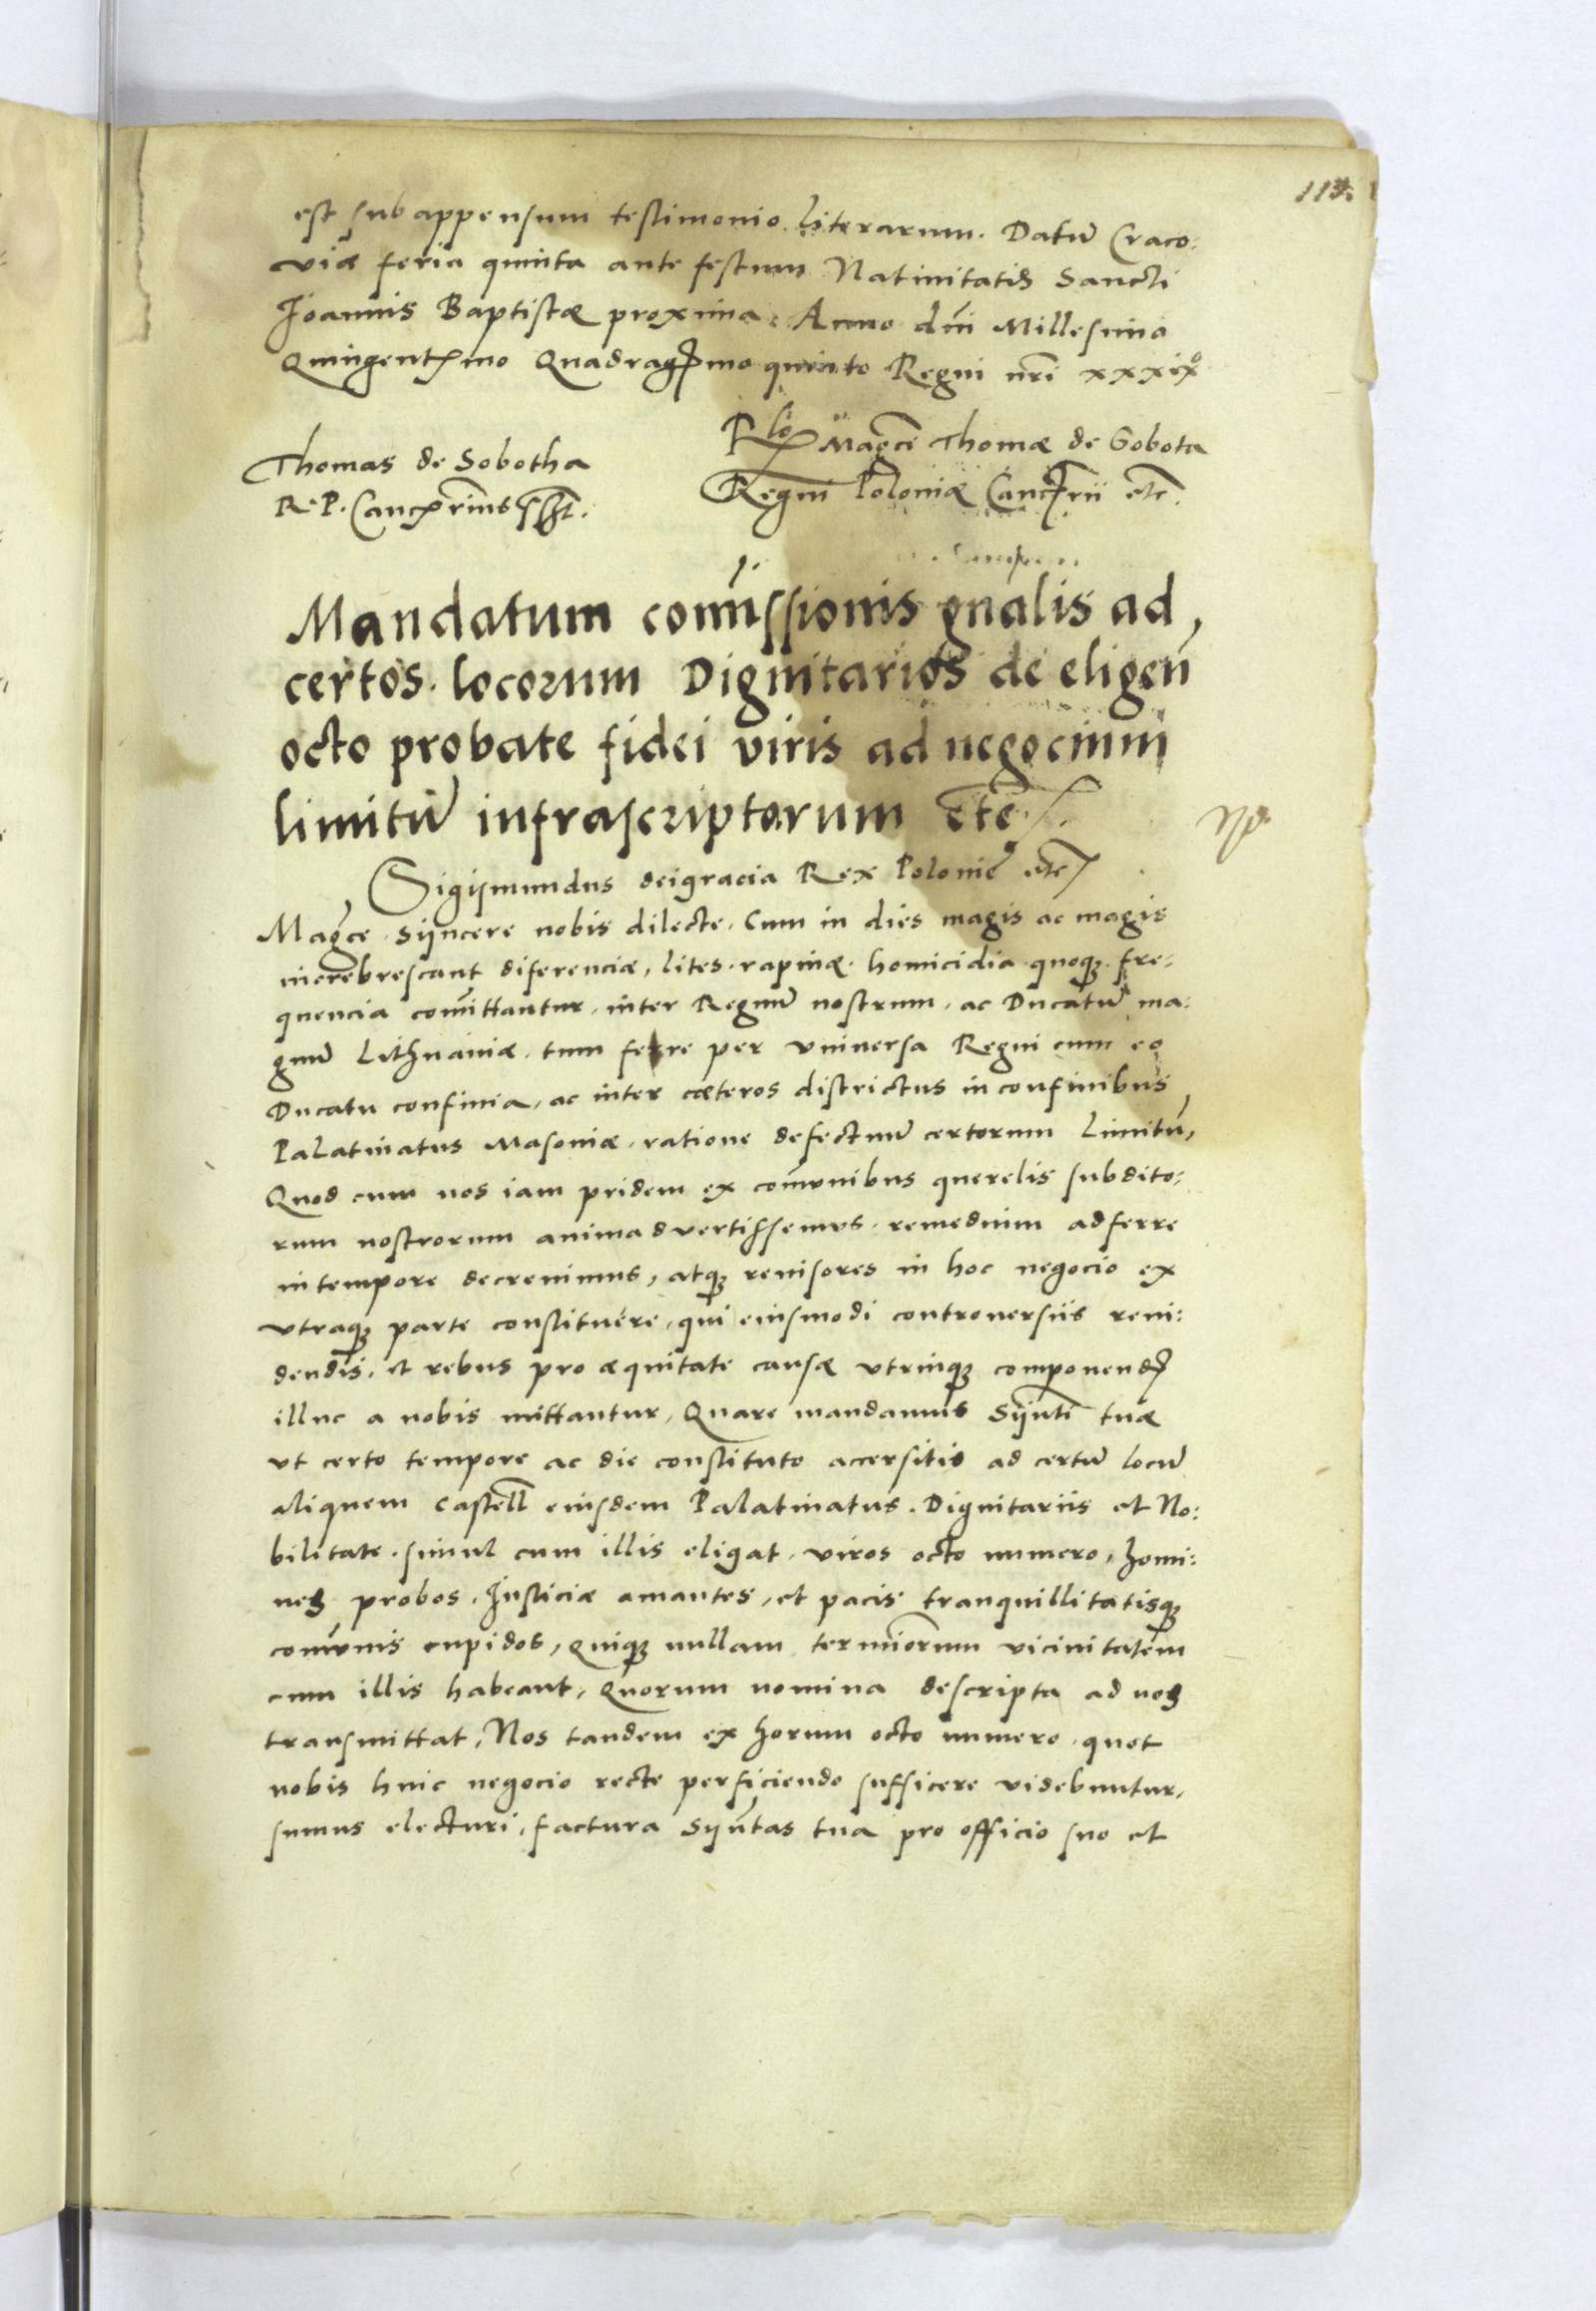 113.
est sub appensum testimonio literarum. Datū Craco:
viæ feria quinta ante festum Natiuitatis Sancti
Joannis Baptistæ proxima. Anno dni Millesimo
Quingentmo Quadragmo quinto Regni nri xxxixº
Thomas de Sobotha
R. P. Cancrius sst.
Rlo Magce Thomæ de Sobota
Regni Poloniæ Cancrii etc.
Mandatum comissionis gnalis ad
certos locorum Dignitarios de eligen
octo probate fidei viris ad negocium
limitū infrascriptorum etc
Sigismundus deigracia Rex Polonie etc
Magce Syncere nobis dilecte. Cum in dies magis ac magis
increbrescant diferenciæ, lites, rapinæ, homicidia quoque fre:
quencia comittantur, inter Regnū nostrum, ac Ducatū ma:
gnū Lithuaniæ, tum ferre per vniuersa Regni cum eo
Ducatu confinia, ac inter cæteros districtus in confinibus
Palatinatus Masouiæ, ratione defectuū certorum limitū,
Quod cum nos iam pridem ex comunibus querelis subdito:
rum nostrorum animaduertissemus, remedium adferre
in tempore decreuimus, atque reuisores in hoc negocio ex
vtraque parte constituere, qui eiusmodi controuersiis reui:
dendis, et rebus pro æquitate causæ vtrinque componend
illuc a nobis mittantur, Quare mandamus Synti tuæ
vt certo tempore ac die constituto accersitis ad certū locū
aliquem castell eiusdem Palatinatus, Dignitariis et No:
bilitate, simul cum illis eligat, viros octo numero, homi:
nes probos, Justiciæ amantes, et pacis tranquillitatisque
comunis cupidos, quique nullam terminorum vicinitatem
cum illis habeant, Quorum nomina descripta ad nos
transmittat, Nos tandem ex horum octo numero, quot
nobis huic negocio recte perficiendo sufficere videbuntur,
sumus electuri, factura Syntas tua pro officio suo et